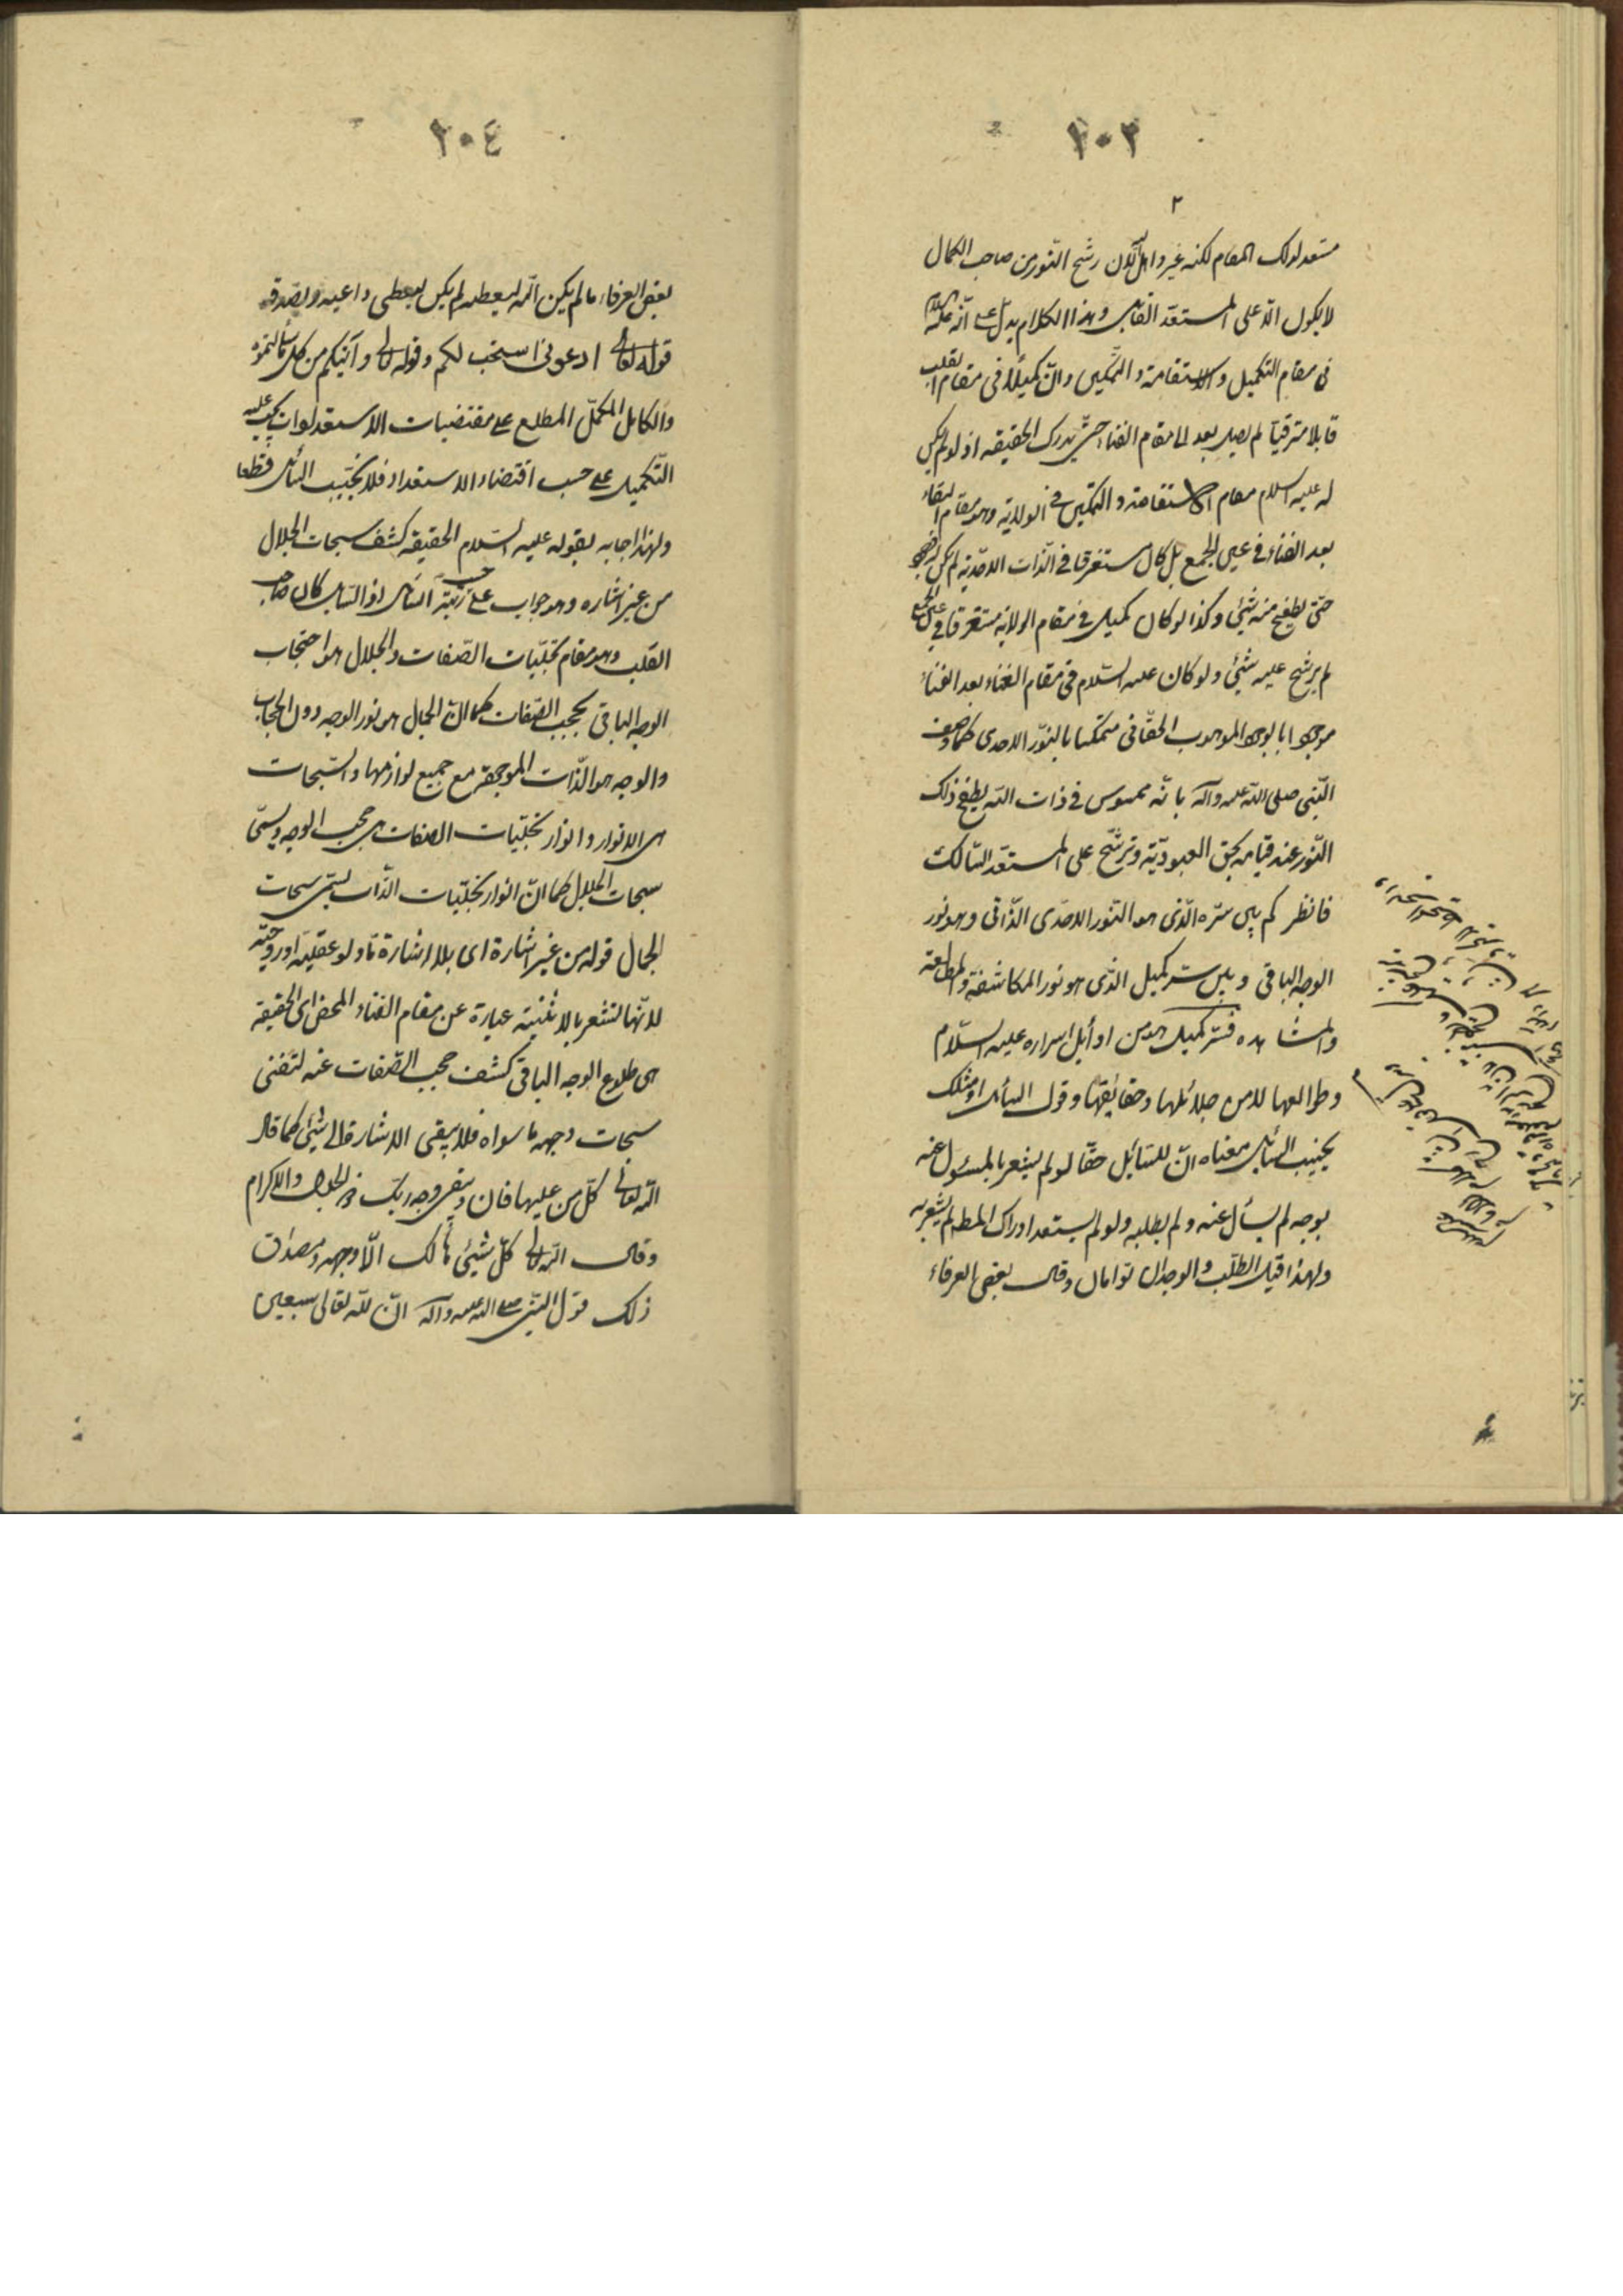 ٢٠٣
٢
مستعد لذلك المقام لكنه غير واصل لأن رشح النور من صاحب الكمال
لا يكون الا على المستعد القابل وهذا الكلام يدل على انه عليه السلام
فى مقام التكميل والاستقامة والتمكين وان كميلا فى مقام القلب
قابلا مترقيا لم يصل بعد الى مقام الفناء حتى يدرك الحقيقه اذ لو لم يكن
له عليه السلام مقام الاستقامة والتمكين فى الولاية وهو مقام البقاء
بعد الفناء فى عين الجمع بل كان مستغرقا فى الذات الاحدية لم يكن
حتى يطفح منه شئ وكذا لو كان كميل فى مقام الولاية مستغرقا فى عين الجمع
لم يرشح عليه شئ ولو كان عليه السلام فى مقام الفناء بعد الفناء
موجودا بالوجود الموهوب الحقانى متمكنا بالنور الاحدى كما وصف
النبى صلى الله عليه وآله بانه ممسوس فى ذات الله يطفح ذلك
النور عند قيامه بحق العبودية وترشح على المستعد السالك
فانظر كم بين سره الذى هو النور الاحدى الذاتى وهو نور
الوجه الباقى وبين سر كميل الذى هو نور المكاشفة والمطالعة
والمشاهده فسر كميل هو من اوائل اسراره عليه السلام
وطوالعها لا من جلائلها وحقائقها وقول السائل او مثلك
يخيب السائل معناه ان للسائل حقا لو لم يشعر بالمسئول عنه
بوجه لم يسأل عنه ولم يطلبه ولو لم يستعد ادراك المط لم يشعر به
ولهذا قيل الطلب والوجدان توامان وقال بعض العرفاء
٢٠٤
بعض العرفاء ما لم يكن الله ليعطيه لم يكن ليعطى داعيه ويصدقه
قوله تعالى ادعونى استجب لكم وقوله تعالى وآتيكم من كل ما سألتموه
والكامل المكمل المطلع على مقتضيات الاستعدادات يجب عليه
التكميل على حسب اقتضاء الاستعداد فلا يخيب السائل قطعا
ولهذا اجابه بقوله عليه السلام الحقيقه كشف سبحات الجلال
من غير اشاره وهو جواب على حسب رتبة السائل اذ السائل كان صاحب
القلب وهو مقام تجليات الصفات والجلال هو احتجاب
الوجه الباقى بحجب الصفات كما ان الجمال هو نور الوجه دون الحجاب
والوجه هو الذات الموجوده مع جميع لوازمها والسبحات
هى الانوار وانوار تجليات الصفات هى حجب الوجه ويسمى
سبحات الجلال كما ان انوار تجليات الذات يسمى سبحات
الجمال قوله من غير اشارة اى بلا اشارة ما ولو عقلية او روحية
لانها تشعر بالاثنينية عبارة عن مقام الفناء المحض اى الحقيقه
هى طلوع الوجه الباقى كشف حجب الصفات عنه لتفنى
سبحات وجهه ما سواه فلا يبقى الاشارة الى شئ كما قال
الله تعالى كل من عليها فان ويبقى وجه ربك ذو الجلال والاكرام
وقال الله تعالى كل شئ هالك الا وجهه ومصداق
ذلك قول النبى صلى الله عليه وآله ان لله تعالى سبعين